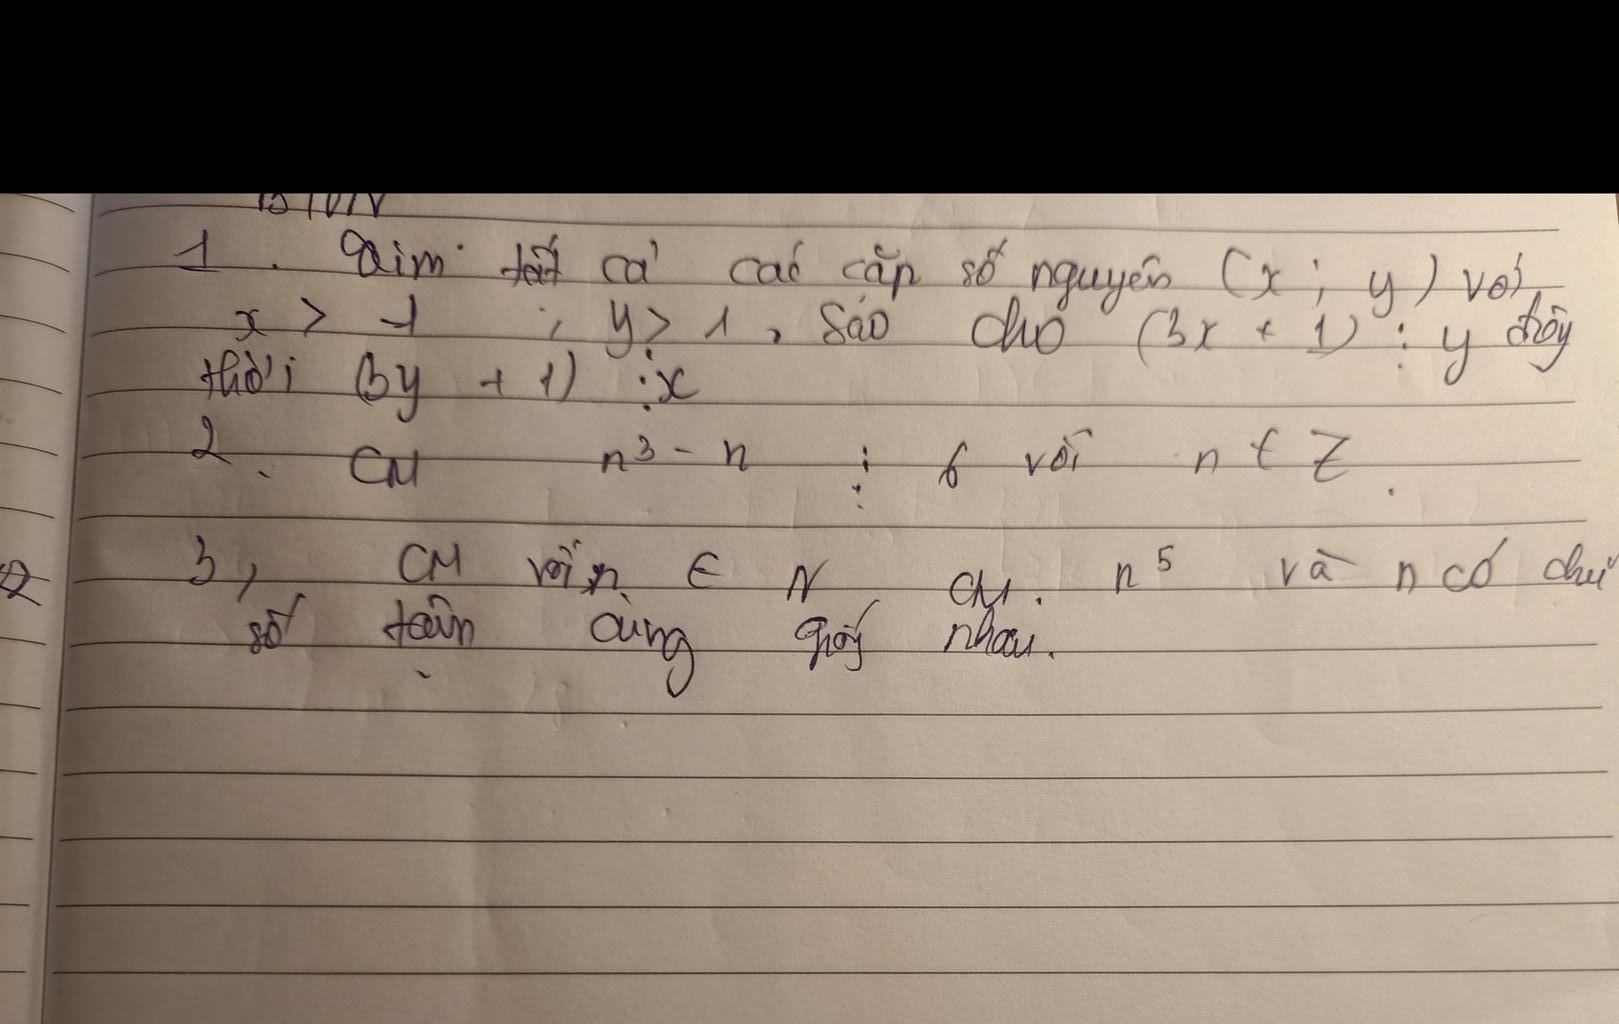 1. Tìm tất cả các cặp số nguyên (x; y) với
x > 1 ; y > 1, sao cho (3x + 1) ⋮ y đồng
thời (3y + 1) ⋮ x
2. CM n³ - n ⋮ 6 với n ∈ Z.
3, CM với n ∈ N CM. n⁵ và n có chữ
số tận cùng giống nhau.